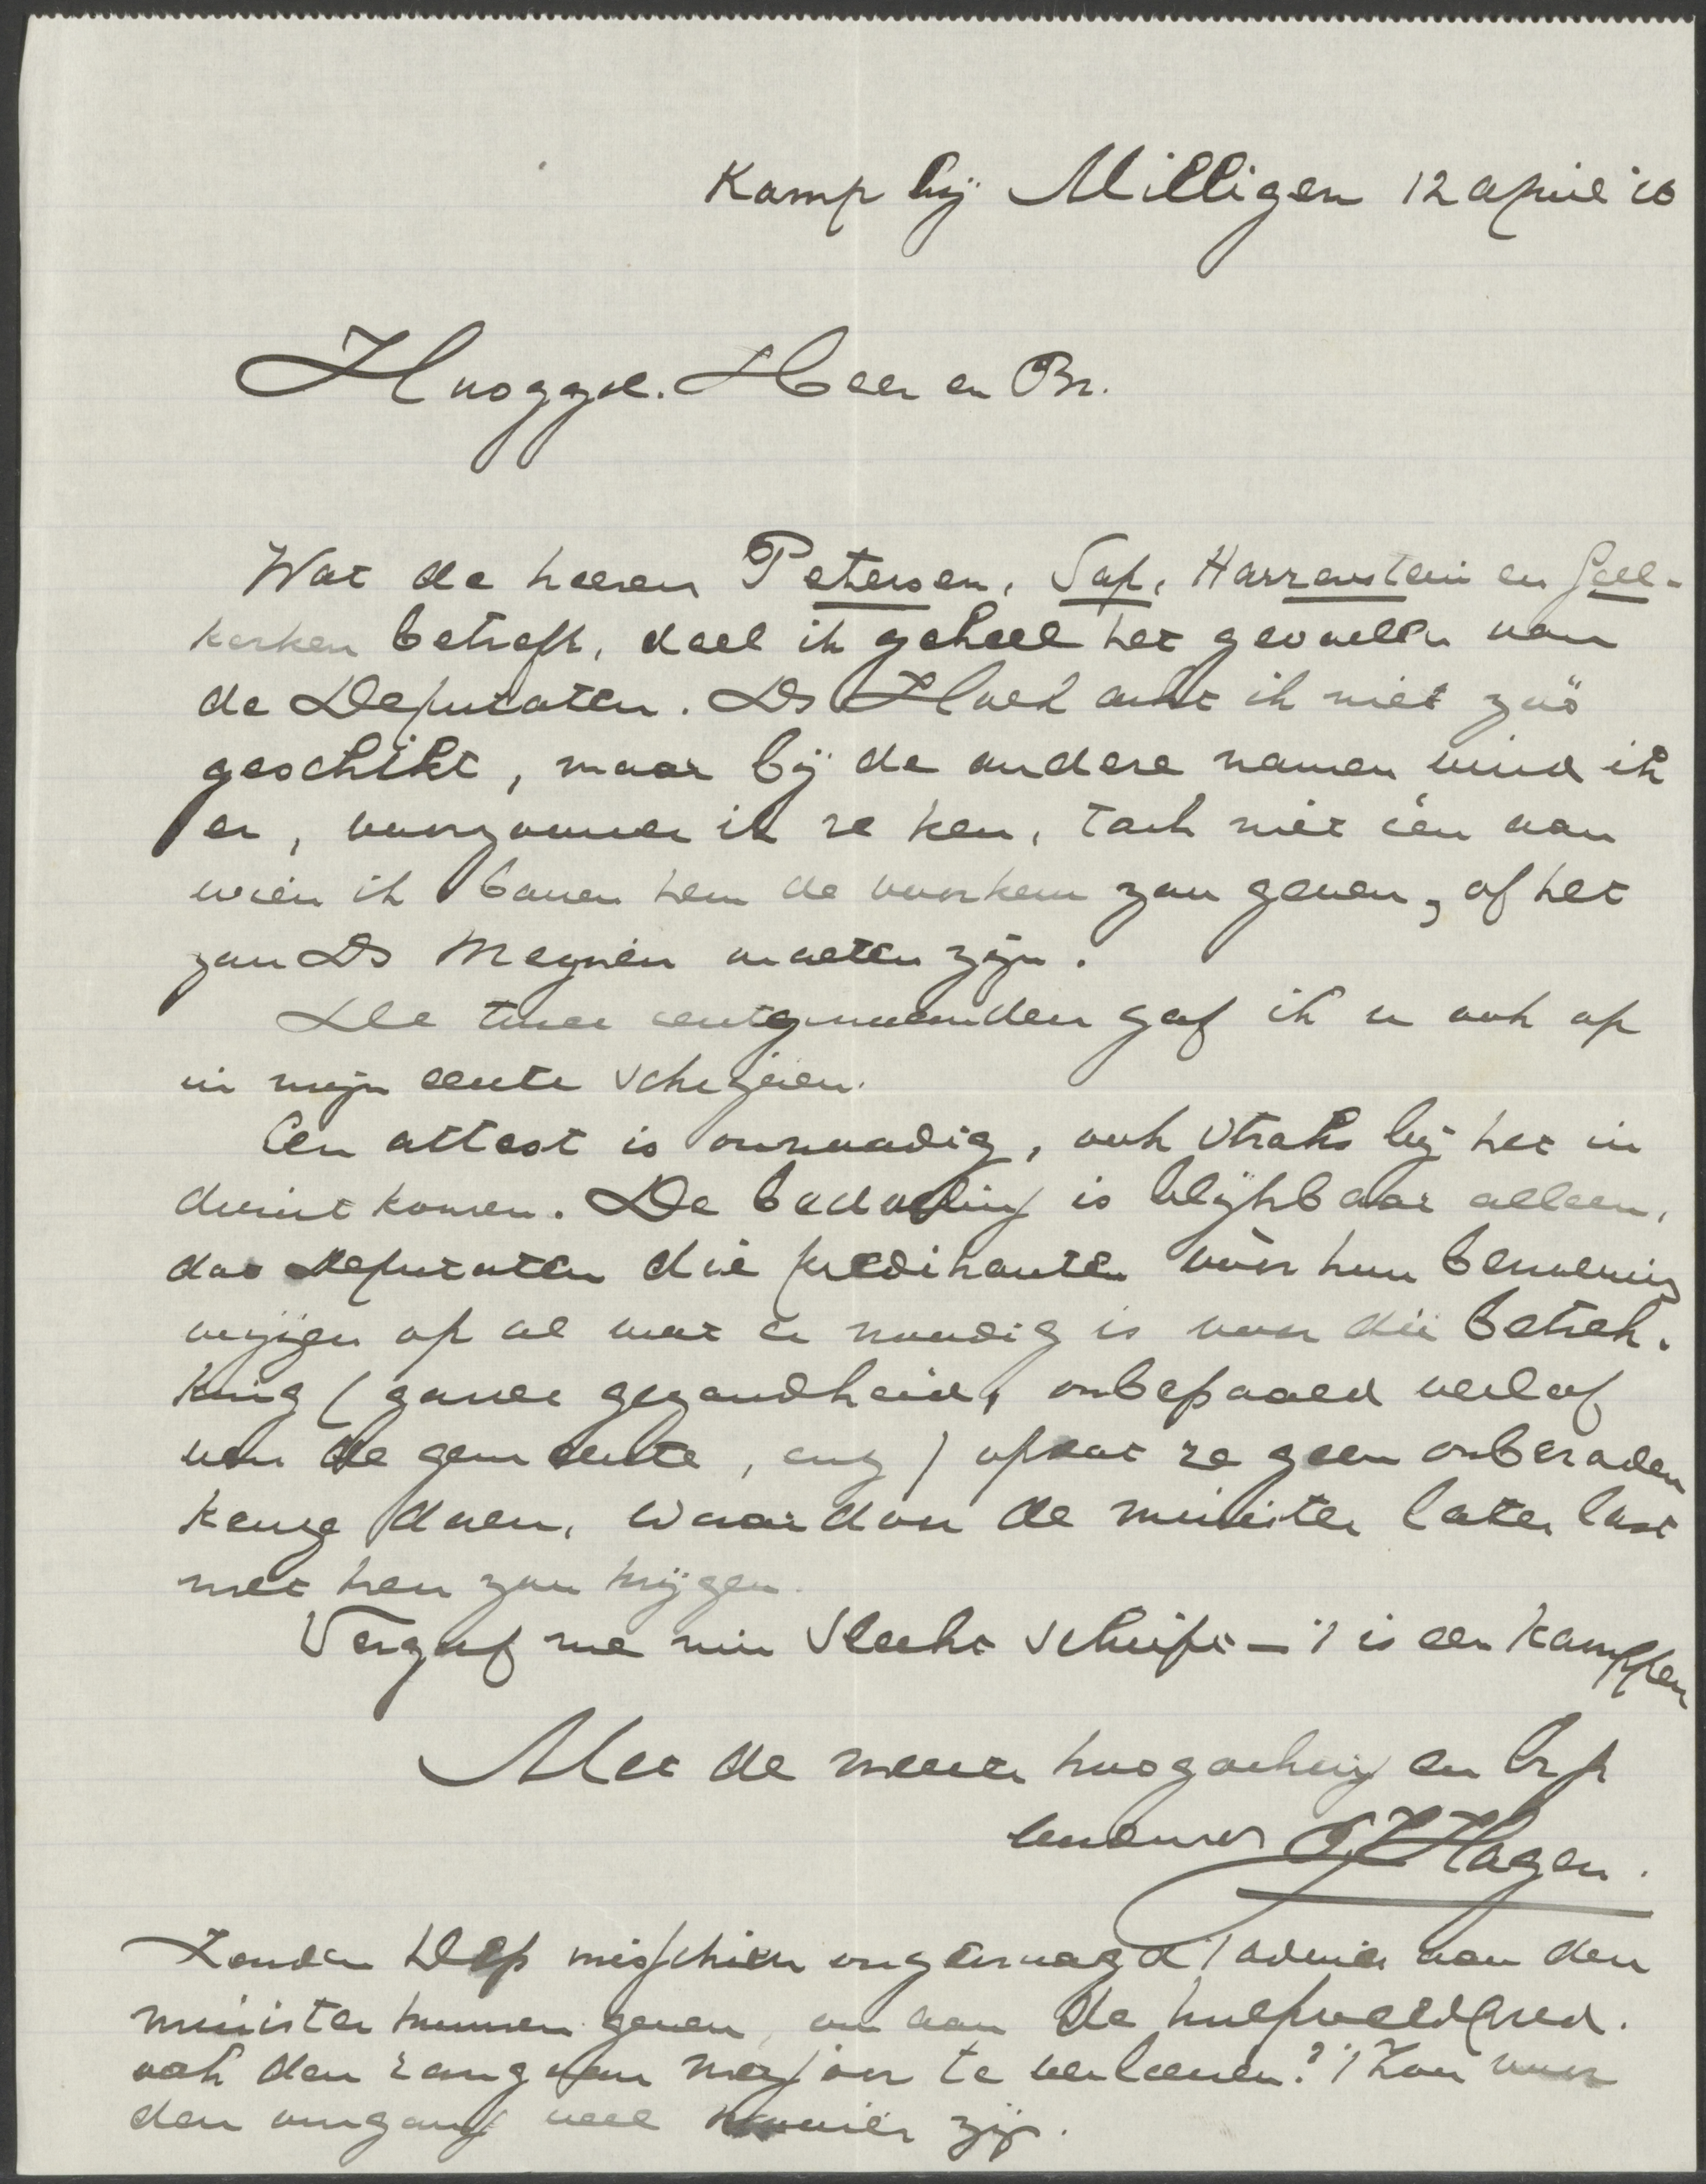 Kamp bij Milligen 12 april '16
Hooggel. Heer en Br.
Wat de heeren Petersen, Sap, Harrenstein en Geel-
kerken betreft, deel ik geheel het gevoelen van
de Deputaten. Ds Hoek acht ik niet zóó
geschikt, maar bij de andere namen vind ik
er, voorzoover ik ze ken, toch niet één aan
wien ik boven hem de voorkeur zou geven, of het
zou Ds Meynen moeten zijn.
De twee eerstgenoemden gaf ik u ook op
in mijn eerste schrijven.
Een attest is onnoodig, ook straks bij het in
dienst komen. De bedoeling is blijkbaar alleen,
dat Deputaten die predikanten vóór hun benoeming
wijzen op al wat er noodig is voor die betrek-
king (goede gezondheid, onbepaald verlof
van de gemeente, enz) opdat ze geen onberaden
keuze doen, waardoor de minister later last
met hen zou krijgen.
Vergeef me mijn slecht schrift – 't is een kamppen
Met de meeste hoogachting en
G H Hagen.
Zouden Dep misschien ongevraagd 't advies aan den
minister kunnen geven, om aan de hulpveldpred.
ook den rang van majoor te verleenen? 't Zou voor
den omgang veel mooier zijn.